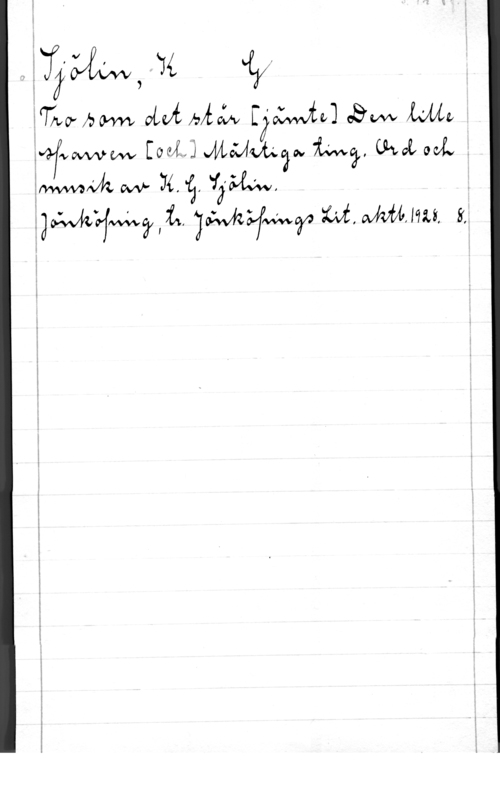 Sjölin, K G
Tro som det står [jämte] Den lille
sparven [och] Mäktiga ting. Ord och
musik av K. G. Sjölin.
Jönköping, tr. Jönköpings Lit. aktb. 1928. 8.